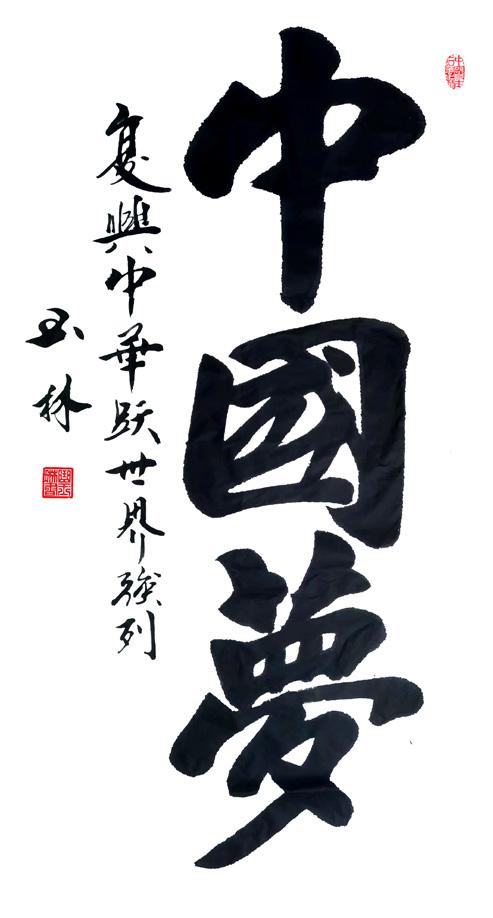 中國夢
复興中華跃世界強列
玉林